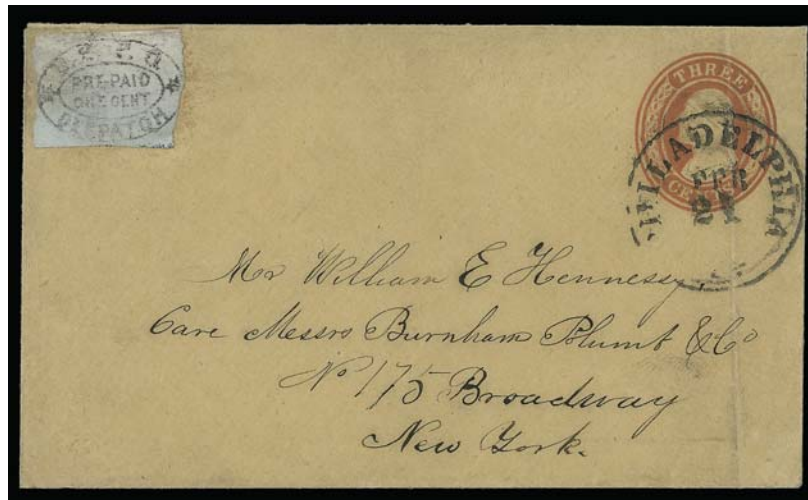 U.S.P.O.
PRE-PAID
ONE CENT
DESPATCH
THREE
CENTS
PHILADELPHIA
FEB
21
Mr William E Hennessy,
Care Messrs Burnham Plumb & Co
No 175 Broadway
New York.